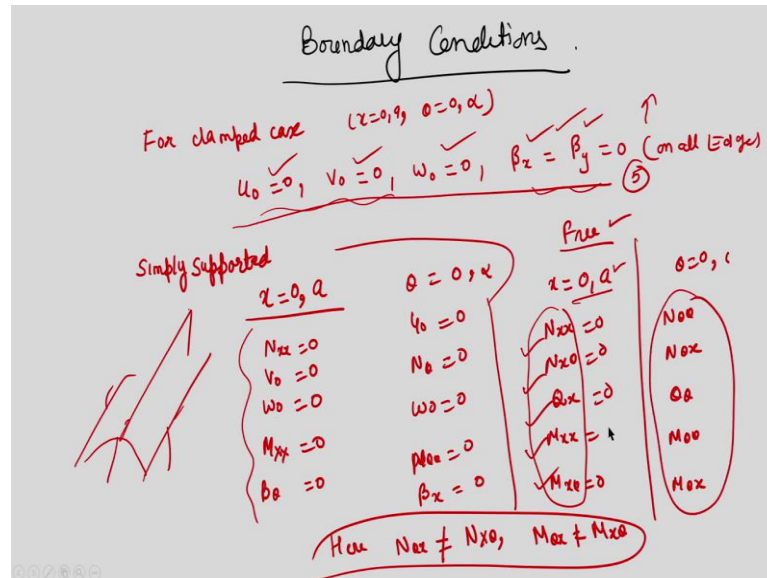 Boundary Conditions.
For clamped case (x=0,a, θ=0,α)
u₀=0, v₀=0, w₀=0, βx = βy = 0 (on all Edges)
⑤
Simply supported
x=0,a
Nxx=0
v₀=0
w₀=0
Mxx=0
βθ=0
θ=0,α
u₀=0
Nθ=0
w₀=0
=0
βx=0
Free
x=0,a
Nxx=0
Nxθ=0
Qx=0
Mxx=
Mxθ=0
θ=0,
Nθθ
Nθx
Qθ
Mθθ
Mθx
Here Nθx ≠ Nxθ, Mθx ≠ Mxθ